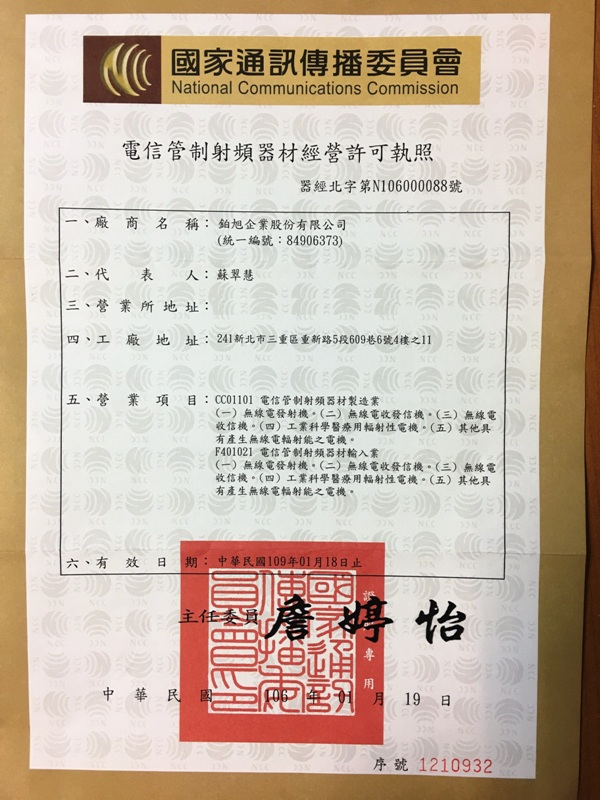 國家通訊傳播委員會
National Communications Commission
電信管制射頻器材經營許可執照
器經北字第N106000088號
一、廠商名稱：鉑旭企業股份有限公司
(統一編號：84906373)
二、代表人：蘇翠慧
三、營業所地址：
四、工廠地址：241新北市三重區重新路5段609巷6號4樓之11
五、營業項目：CC01101 電信管制射頻器材製造業
(一)無線電發射機。(二)無線電收發信機。(三)無線電
收信機。(四)工業科學醫療用輻射性電機。(五)其他具
有產生無線電輻射能之電機。
F401021 電信管制射頻器材輸入業
(一)無線電發射機。(二)無線電收發信機。(三)無線電
收信機。(四)工業科學醫療用輻射性電機。(五)其他具
有產生無線電輻射能之電機。
六、有效日期：中華民國109年01月18日止
主任委員 詹婷怡
中華民國 106 年 01 月 19 日
序號 1210932